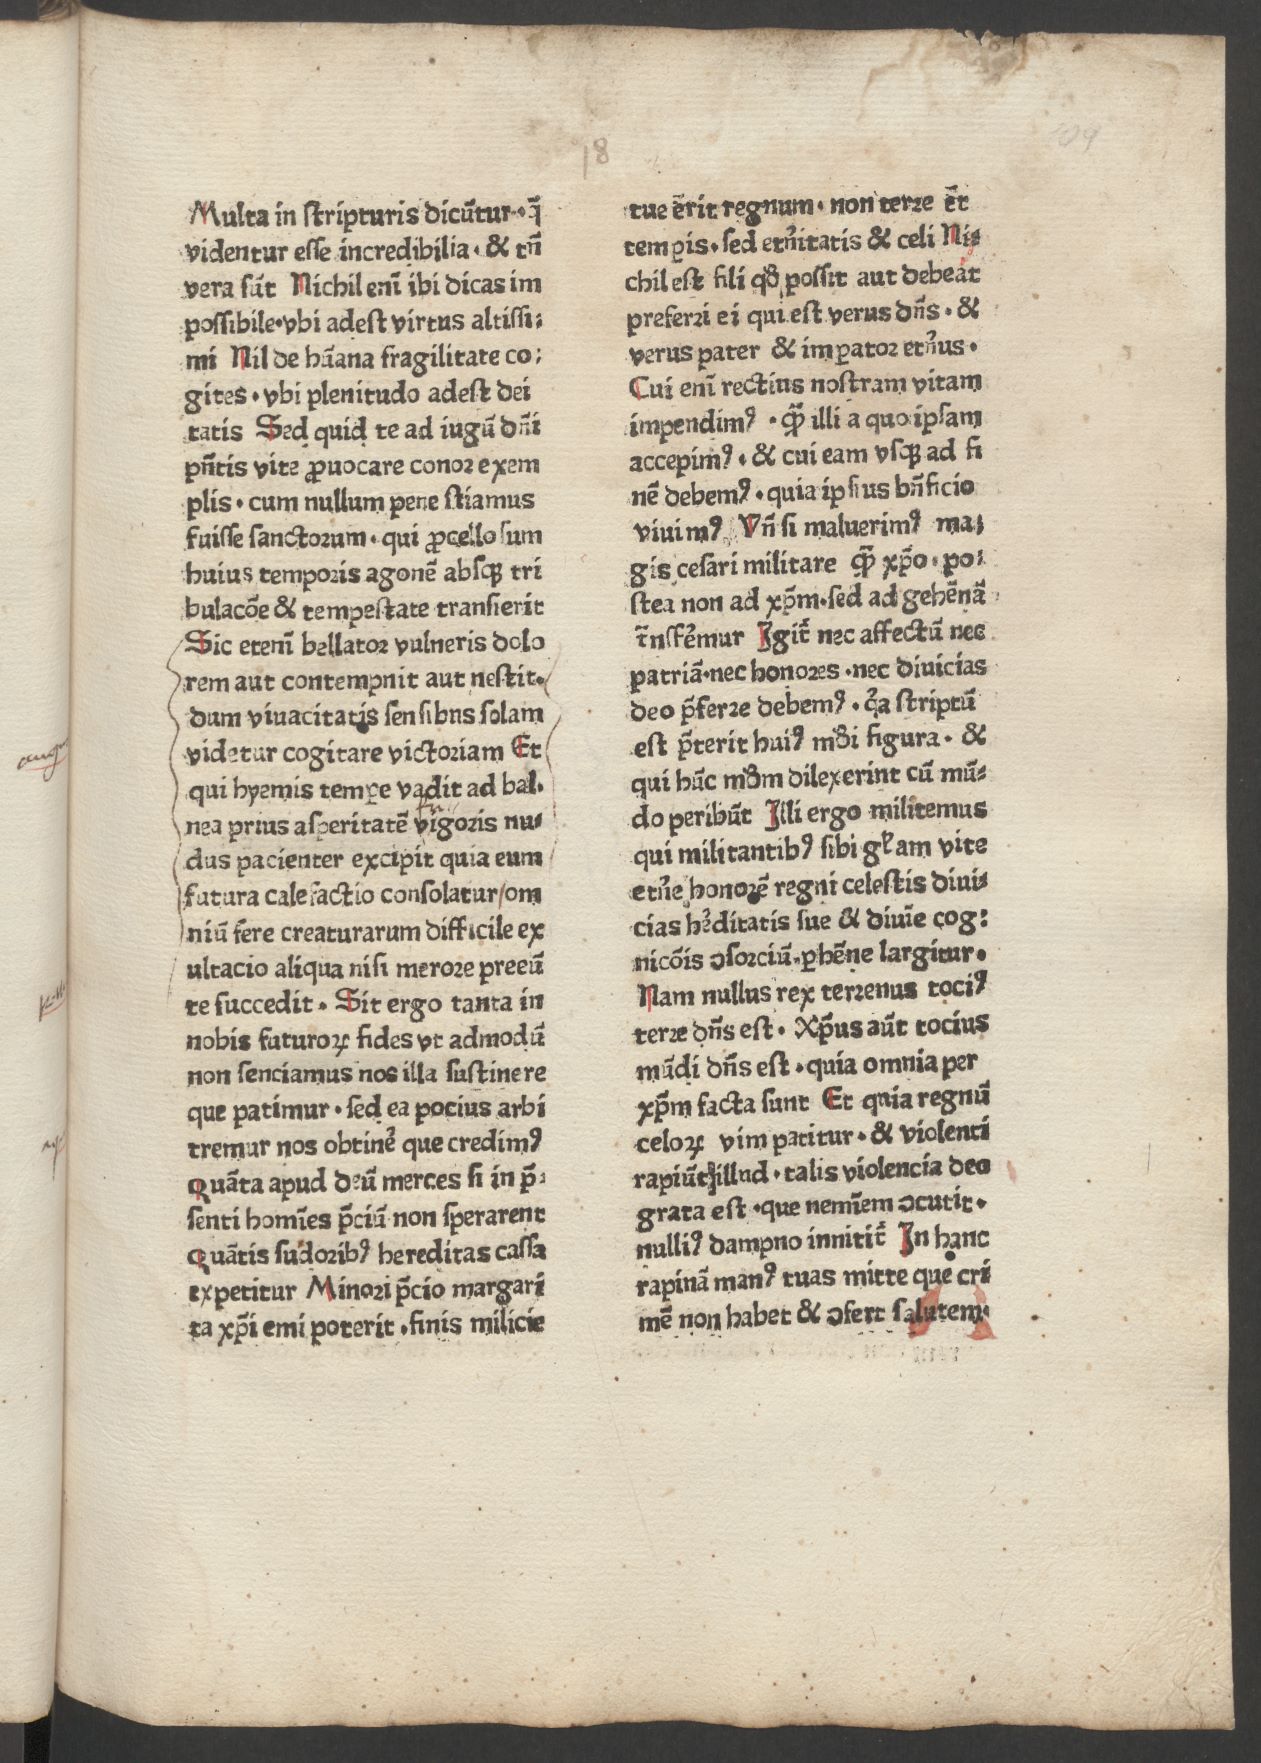 18
109
Multa in scripturis dicūtur · q̄
videntur esse incredibilia · & tn̄
vera sūt Nichil enī ibi dicas im
possibile · vbi adest virtus altissi;
mi Nil de hūana fragilitate co;
gites · vbi plenitudo adest dei
tatis Sed quid te ad iugū dn̄i
pn̄tis vite ꝓuocare conor exem
plis · cum nullum pene sciamus
fuisse sanctorum · qui ꝓcellosum
huius temporis agonē absqꝫ tri
bulacōe & tempestate transierit
Sic etenī bellator vulneris dolo
rem aut contempnit aut nescit ·
dum viuacitatis sensibns solam
videtur cogitare victoriam Et
qui hyemis tempe vadit ad bal·
nea prius asperitatē vigoris nu⸗
dus pacienter excipit quia eum
futura calefactio consolatur/om
niū fere creaturarum difficile ex
ultacio aliqua nisi merore preeū
te succedit · Sit ergo tanta in
nobis futuroꝝ fides vt admodū
non senciamus nos illa sustinere
que patimur · sed ea pocius arbi
tremur nos obtinē que credimꝰ
Quāta apud deū merces si in p̄⸗
senti homīes p̄ciū non sperarent
Quātis sudoribꝰ hereditas cassa
expetitur Minori p̄cio margari
ta xp̄i emi poterit · finis milicie
tue ērit regnum · non terre ēt
tempis · sed etn̄itatis & celi Ni⸗
chil est fili qd̄ possit aut debeat
preferri ei qui est verus dn̄s · &
verus pater & imperator etn̄us ·
Cui enī rectius nostram vitam
impendimꝰ · qͣ̄ illi a quo ipsam
accepimꝰ · & cui eam vsqꝫ ad fi
nē debemꝰ · quia ipsius bn̄ficio
viuimꝰ Vn̄ si maluerimꝰ ma;
gis cesari militare qͣ̄ xp̄o · po⸗
stea non ad xp̄m · sed ad gehēnā
t̄nsfēmur Igit̄ nec affectū nec
patriā · nec honores · nec diuicias
deo p̄ferre debemꝰ · qͣa scriptū
est p̄terit huiꝰ mūdi figura · &
qui hūc mūdm dilexerint cū mū⸗
do peribūt Illi ergo militemus
qui militantibꝰ sibi gl̄am vite
etn̄e honorē regni celestis diui⸗
cias hēditatis sue & diuīe cog:
nicōis ↄsorciū · perhēne largitur ·
Nam nullus rex terrenus tociꝰ
terre dn̄s est · Xp̄us aūt tocius
mūdi dn̄s est · quia omnia per
xp̄m facta sunt Et qnia regnū
celoꝝ vim patitur · & violenti
rapiūt illud · talis violencia deo
grata est · que nemīem ↄcutit ·
nulliꝰ dampno innitit̄ In hanc
rapinā manꝰ tuas mitte que cri
mē non habet & ↄfert salutem ·